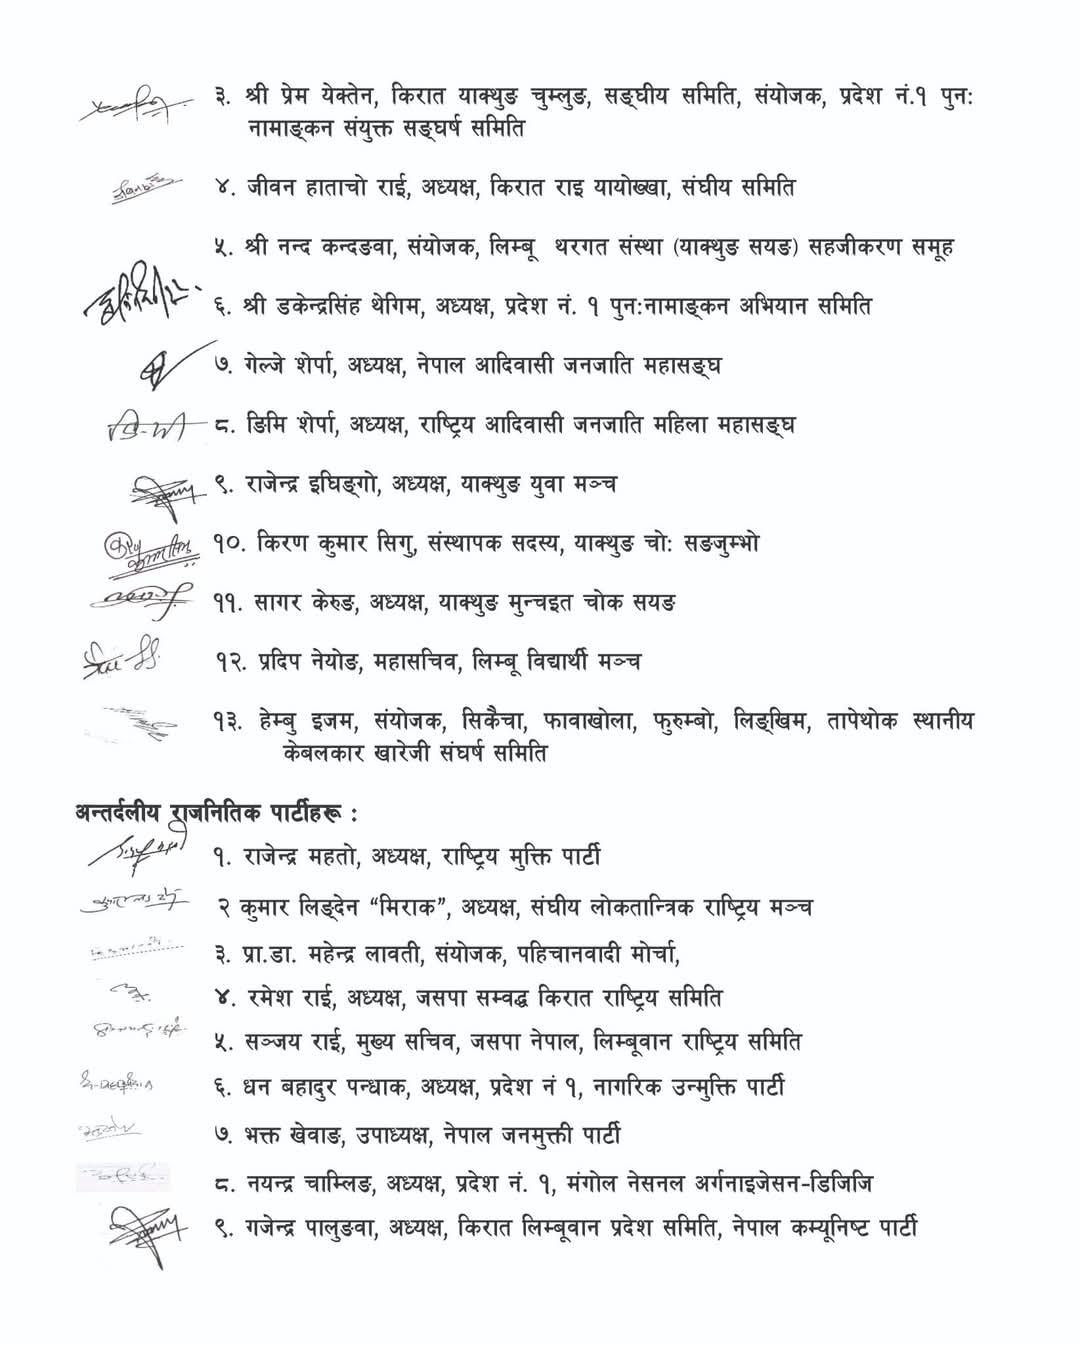 ३. श्री प्रेम येक्तेन, किरात याक्थुङ चुम्लुङ, सङ्घीय समिति, संयोजक, प्रदेश नं.१ पुनः
नामाङ्कन संयुक्त सङ्घर्ष समिति
४. जीवन हाताचो राई, अध्यक्ष, किरात राइ यायोख्खा, संघीय समिति
५. श्री नन्द कन्दङवा, संयोजक, लिम्बू थरगत संस्था (याक्थुङ सयङ) सहजीकरण समूह
६. श्री डकेन्द्रसिंह थेगिम, अध्यक्ष, प्रदेश नं. १ पुनःनामाङ्कन अभियान समिति
७. गेल्जे शेर्पा, अध्यक्ष, नेपाल आदिवासी जनजाति महासङ्घ
८. ङिमि शेर्पा, अध्यक्ष, राष्ट्रिय आदिवासी जनजाति महिला महासङ्घ
९. राजेन्द्र इघिङ्गो, अध्यक्ष, याक्थुङ युवा मञ्च
१०. किरण कुमार सिगु, संस्थापक सदस्य, याक्थुङ चोः सङजुम्भो
११. सागर केरुङ, अध्यक्ष, याक्थुङ मुन्चइत चोक सयङ
१२. प्रदिप नेयोङ, महासचिव, लिम्बू विद्यार्थी मञ्च
१३. हेम्बु इजम, संयोजक, सिकैचा, फावाखोला, फुरुम्बो, लिङ्खिम, तापेथोक स्थानीय
केबलकार खारेजी संघर्ष समिति
अन्तर्दलीय राजनितिक पार्टीहरू :
१. राजेन्द्र महतो, अध्यक्ष, राष्ट्रिय मुक्ति पार्टी
२ कुमार लिङ्देन “मिराक”, अध्यक्ष, संघीय लोकतान्त्रिक राष्ट्रिय मञ्च
३. प्रा.डा. महेन्द्र लावती, संयोजक, पहिचानवादी मोर्चा,
४. रमेश राई, अध्यक्ष, जसपा सम्वद्ध किरात राष्ट्रिय समिति
५. सञ्जय राई, मुख्य सचिव, जसपा नेपाल, लिम्बूवान राष्ट्रिय समिति
६. धन बहादुर पन्धाक, अध्यक्ष, प्रदेश नं १, नागरिक उन्मुक्ति पार्टी
७. भक्त खेवाङ, उपाध्यक्ष, नेपाल जनमुक्ती पार्टी
८. नयन्द्र चाम्लिङ, अध्यक्ष, प्रदेश नं. १, मंगोल नेसनल अर्गनाइजेसन-डिजिजि
९. गजेन्द्र पालुङवा, अध्यक्ष, किरात लिम्बूवान प्रदेश समिति, नेपाल कम्यूनिष्ट पार्टी